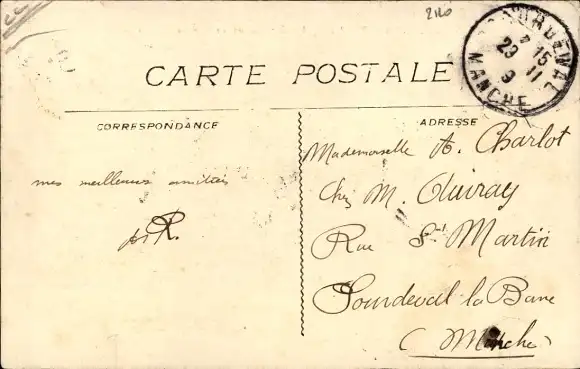 2160
SOURDEVAL
7 15
29 11
9
MANCHE
CARTE POSTALE
CORRESPONDANCE
ADRESSE
mes meilleures amitiés
R.
Mademoiselle A. Charlot
Chez M.
Rue St Martin
Sourdeval la Barre
(Manche)